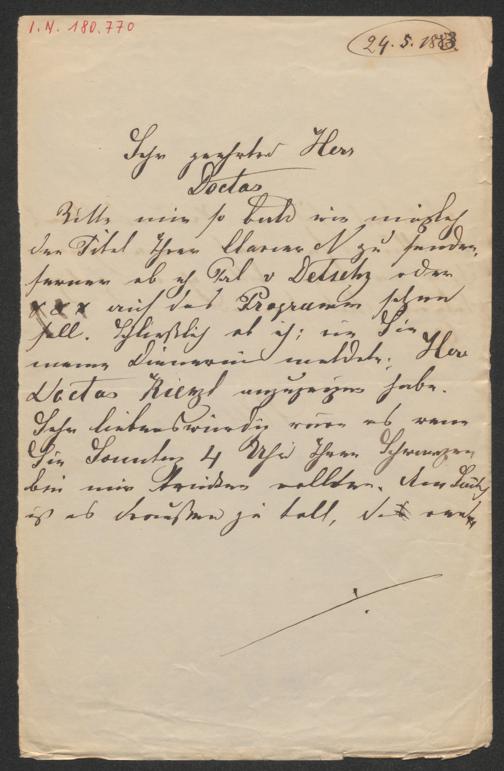 I. N. 180.770
24. 5. 1883
Sehr geehrter Herr
Doctor
Bitte mir so bald wie möglich
den Titel Ihrer Clavier N zu senden,
ferner ob ich Frl v Detschy oder
x x x auf das Programm setzen
soll. Schließlich ob ich; wie Sie
meine Dienerin meldete, Herr
Doctor Kienzl anzuzeigen habe.
Sehr liebenswürdig wäre es wenn
Sie Sonntag 4 Uhr Ihren Schwarzen
bei mir trinken wollten. Am
ist es draußen zu toll,